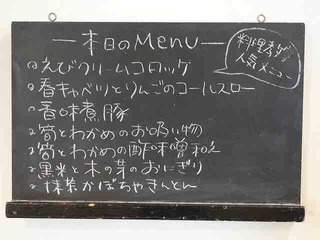 本日のMenu
料理教室
人気メニュー
えびクリームコロッケ
春キャベツとりんごのコールスロー
香味煮豚
筍とわかめのお吸い物
筍とわかめの酢味噌和え
黒米と木の芽のおにぎり
抹茶かぼちゃきんとん